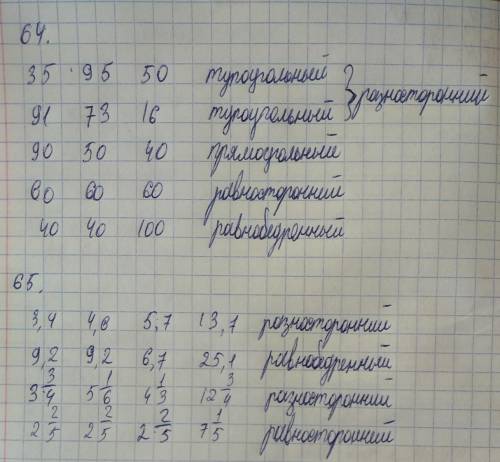 64.
35 95 50 тупоугольный } разносторонний
91 73 16 тупоугольный
90 50 40 прямоугольный
60 60 60 равносторонний
40 40 100 равнобедренный
65.
3,4 4,6 5,7 13,7 разносторонний
9,2 9,2 6,7 25,1 равнобедренный
3 3/4 5 1/6 4 1/3 12 3/4 разносторонний
2 2/5 2 2/5 2 2/5 7 1/5 равносторонний